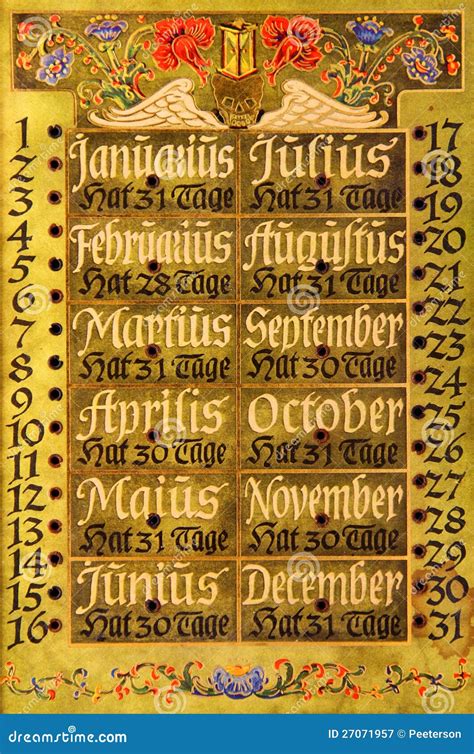 Januarius Julius
Hat 31 Tage Hat 31 Tage
Februarius Augustus
Hat 28 Tage Hat 31 Tage
Martius September
Hat 31 Tage Hat 30 Tage
Aprilis October
Hat 30 Tage Hat 31 Tage
Maius November
Hat 31 Tage Hat 30 Tage
Junius December
Hat 30 Tage Hat 31 Tage
1
2
3
4
5
6
7
8
9
10
11
12
13
14
15
16
17
18
19
20
21
22
23
24
25
26
27
28
29
30
31
dreamstime.com
ID 27071957 © Peeterson